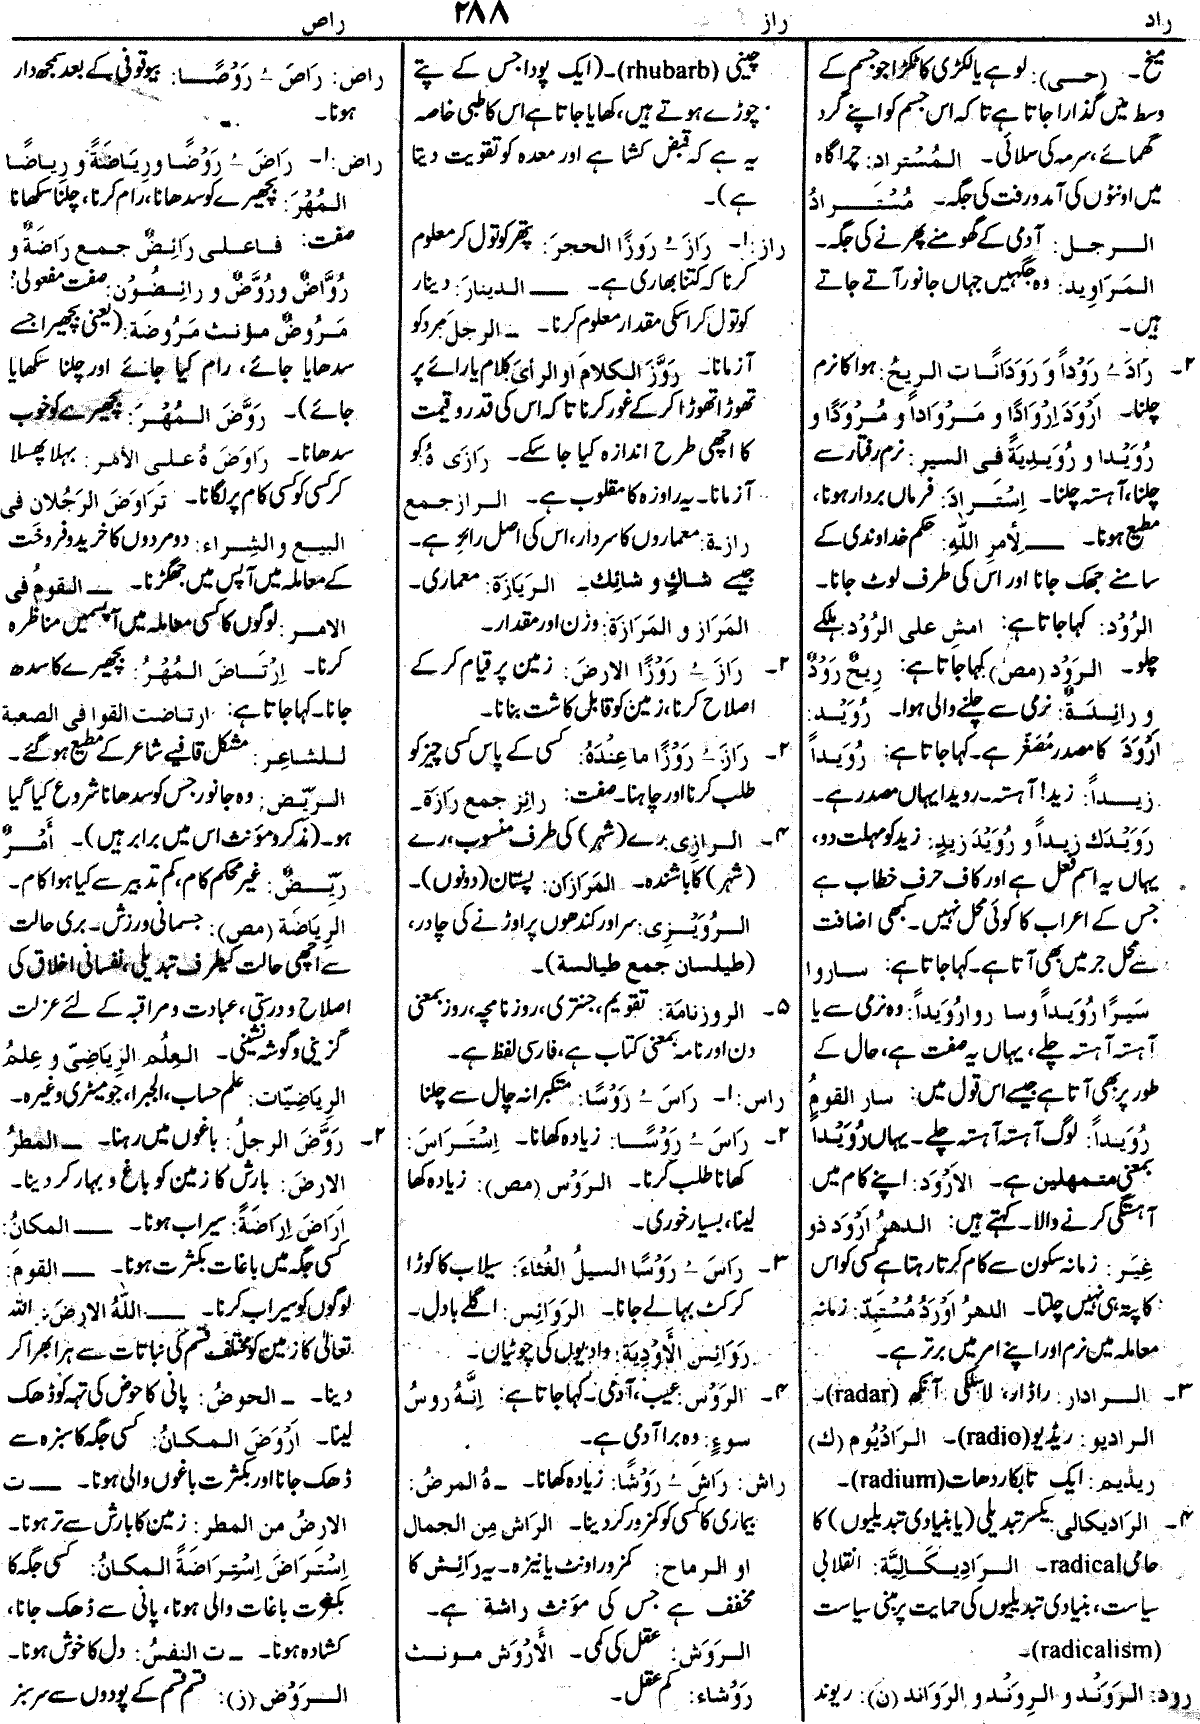 راد
راز
۲۸۸
راض
میخ۔ (حسی): لوہے یا لکڑی کا ٹکڑا جو جسم کے
وسط میں گذارا جاتا ہے تا کہ اس جسم کو اپنے گرد
گھمائے، سرمہ کی سلائی۔ المُسْتراد: چراگاہ
میں اونٹوں کی آمد ورفت کی جگہ۔ مُسْتَرادُ
الرجل: آدمی کے گھومنے پھرنے کی جگہ۔
المَرَاوِید: وہ جگہیں جہاں جانور آتے جاتے
ہیں۔
۲۔ رَادَ ـُ رَوْداً و رَوَدَانًا ت الریحُ: ہوا کا نرم
چلنا۔ اَرْوَدَ اِرْوَادًا و مَرْوَاداً و مُرْوَدًا و
رُوَیْدا و رُوَیدِیَةً فی السیر: نرم رفتار سے
چلنا، آہستہ چلنا۔ اِسْتَرادَ: فرماں بردار ہونا،
مطیع ہونا۔ ــــ لِأمرِ اللّٰهِ: حکم خداوندی کے
سامنے جھک جانا اور اس کی طرف لوٹ جانا۔
الرُوْد: کہا جاتا ہے: امشِ علی الرُوْد: ہلکے
چلو۔ الرَوْد (مص) کہا جاتا ہے: رِیحٌ رَوْدٌ
و رائِدَةٌ: نرمی سے چلنے والی ہوا۔ رُوَیْد:
اَرْوَدَ کا مصدر مُصَغّر ہے۔ کہا جاتا ہے: رُوَیداً
زیداً: زید! آہستہ۔ رویدا یہاں مصدر ہے۔
رَوَیْدَك زیداً و رُوَیْدَ زیدٍ: زید کو مہلت دو،
یہاں یہ اسم فعل ہے اور کاف حرف خطاب ہے
جس کے اعراب کا کوئی محل نہیں۔ کبھی اضافت
سے محل جر میں بھی آتا ہے۔ کہا جاتا ہے: ساروا
سَیرًا رُوَیداً وسا روا رُوَیداً: وہ نرمی سے یا
آہستہ آہستہ چلے، یہاں یہ صفت ہے، حال کے
طور پر بھی آتا ہے جیسے اس قول میں: سار القومُ
رُوَیداً: لوگ آہستہ آہستہ چلے۔ یہاں رُوَیْداً
بمعنی متمهلین ہے۔ الارْوَد: اپنے کام میں
آہستگی کرنے والا۔ کہتے ہیں: الدهرُ ارْوَد ذو
غِیَر: زمانہ سکون سے کام کرتا رہتا ہے کسی کو اس
کا پتہ ہی نہیں چلتا۔ الدهرُ اَوْرَدُ مُسْتَبِدّ: زمانہ
معاملہ میں نرم اور اپنے امر میں برتر ہے۔
۳۔ الرادار: راڈار، لاسلکی آنکھ (radar)۔
الرادیو: ریڈیو (radio)۔ الرَادْیُوم (ك)
ریڈیم: ایک تابکار دھات (radium)۔
۴۔ الرَادِیکالی: یکسر تبدیلی (یا بنیادی تبدیلیوں) کا
حامی radical۔ الرَادِیکَالِیَّة: انقلابی
سیاست، بنیادی تبدیلیوں کی حمایت پر مبنی سیاست
(radicalism)۔
رود: الرَوَنْد و الرِونْد و الرَوَاند (ن): ریوند
چینی (rhubarb)۔ (ایک پودا جس کے پتے
چوڑے ہوتے ہیں، کھایا جاتا ہے اس کا طبی خاصہ
یہ ہے کہ قبض کشا ہے اور معدہ کو تقویت دیتا
ہے)۔
راز: ۱۔ رَازَ ـُ رَوزًا الحجرَ: پتھر کو تول کر معلوم
کرنا کہ کتنا بھاری ہے۔ ــــ الدینارَ: دینار
کو تول کر اسکی مقدار معلوم کرنا۔ ـ الرجلَ مرد کو
آزمانا۔ رَوَّزَ الکلامَ او الرأیَ کلام یا رائے پر
تھوڑا تھوڑا کر کے غور کرنا تا کہ اس کی قدر و قیمت
کا اچھی طرح اندازہ کیا جا سکے۔ رَازَی ہُ کو
آزمانا۔ یہ راوزہ کا مقلوب ہے۔ الراز جمع
رازة: معماروں کا سردار، اس کی اصل رائز ہے۔
جیسے شاكٍ و شائِك۔ الرَیَازَة: معماری۔
المَرَاز و المَرَازَة: وزن اور مقدار۔
۲۔ رَازَ ـُ رَوْزًا الارضَ: زمین پر قیام کر کے
اصلاح کرنا، زمین کو قابل کاشت بنانا۔
۳۔ رَازَ ـُ رَوْزًا ما عِنْدَهُ: کسی کے پاس کسی چیز کو
طلب کرنا اور چاہنا۔ صفت: رائِز جمع رَازَة۔
۴۔ الرازِی: رے (شہر) کی طرف منسوب، رے
(شہر) کا باشندہ۔ المَرَازان: پستان (دونوں)۔
الرُوَیْزِی: سر اور کندھوں پر اوڑنے کی چادر،
(طیلسان جمع طیالسة)۔
۵۔ الروزنامَة: تقویم، جنتری، روز نامچہ، روز بمعنی
دن اور نامہ بمعنی کتاب ہے، فارسی لفظ ہے۔
راس: ۱۔ رَاسَ ـُ رَوْسًا: متکبرانہ چال سے چلنا
۲۔ رَاسَ ـُ رَوْسًا: زیادہ کھانا۔ اِسْتَرَاسَ:
کھانا طلب کرنا۔ الرَوْس (مص): زیادہ کھا
لینا، بسیار خوری۔
۳۔ رَاسَ ـُ رَوْسًا السیلُ الغُثاءَ: سیلاب کا کوڑا
کرکٹ بہا لے جانا۔ الرَوَائِس: اگلے بادل۔
رَوَائِس الأَوْدِیَة: وادیوں کی چوٹیاں۔
۴۔ الرَوْس: عیب، آدمی۔ کہا جاتا ہے: اِنَّهُ روسُ
سوءٍ: وہ برا آدمی ہے۔
راش: رَاشَ ـُ رَوْشًا: زیادہ کھانا۔ ـ هُ المرضُ:
بیماری کا کسی کو کمزور کر دینا۔ الرَاش مِن الجمال
او الرماح: کمزور اونٹ یا نیزہ۔ یہ رائِش کا
مخفف ہے جس کی مؤنث راشة ہے۔
الرَوَش: عقل کی کمی۔ الأَرْوَش مونث
رَوْشاء: کم عقل۔
راض: رَاضَ ـُ رَوْضًا: بیوقوفی کے بعد سمجھدار
ہونا۔
راض: ۱۔ رَاضَ ـُ رَوْضًا و رِیَاضَةً و رِیاضًا
المُهْرَ: بچھیرے کو سدھانا، رام کرنا، چلنا سکھانا
صفت: فاعلی رَائِضٌ جمع رَاضَةٌ و
رُوَّاضٌ و رُوَّضٌ و رائِضُون: صفت مفعولی:
مَرُوضٌ مؤنث مَرُوضَة: (یعنی بچھیرا جسے
سدھایا جائے، رام کیا جائے اور چلنا سکھایا
جائے)۔ رَوَّضَ المُهْرَ: بچھیرے کو خوب
سدھانا۔ رَاوَضَ هُ علی الأمر: بہلا پھسلا
کر کسی کو کسی کام پر لگانا۔ تَرَاوَضَ الرَجُلان فی
البیع والشِراء: دو مردوں کا خرید و فروخت
کے معاملہ میں آپس میں جھگڑنا۔ ــ القومُ فی
الامر: لوگوں کا کسی معاملہ میں آپسمیں مناظرہ
کرنا۔ اِرْتَاضَ المُهْرُ: بچھیرے کا سدھ
جانا۔ کہا جاتا ہے: ارتاضت القوا فی الصعبة
للشاعر: مشکل قافیے شاعر کے مطیع ہو گئے۔
الریّض: وہ جانور جس کو سدھانا شروع کیا گیا
ہو۔ (مذکر و مؤنث اس میں برابر ہیں)۔ أَمْرٌ
ریّضٌ: غیر محکم کام، کم تدبیر سے کیا ہوا کام۔
الرِیاضَة (مص): جسمانی ورزش۔ بری حالت
سے اچھی حالت کیطرف تبدیلی، نفسانی اخلاق کی
اصلاح و درستی، عبادت و مراقبہ کے لئے عزلت
گزینی و گوشہ نشینی۔ العِلْم الرِیَاضِیّ و عِلمُ
الرِیاضِیّات: علم حساب، الجبرا، جومیٹری وغیرہ۔
۲۔ رَوَّضَ الرجلُ: باغوں میں رہنا۔ ــــ المطرُ
الارضَ: بارش کا زمین کو باغ و بہار کر دینا۔
اَرَاضَ اِرَاضَةً: سیراب ہونا۔ ــــ المکانُ:
کسی جگہ میں باغات بکثرت ہونا۔ ــــ القومَ:
لوگوں کو سیراب کرنا۔ ــــ اللّٰهُ الارضَ: اللہ
تعالٰی کا زمین کو مختلف قسم کی نباتات سے ہرا بھرا کر
دینا۔ ـ الحوضُ: پانی کا حوض کی تہ کو ڈھک
لینا۔ اَرْوَضَ المکانُ: کسی جگہ کا سبزہ سے
ڈھک جانا اور بکثرت باغوں والی ہونا۔ ــــ ت
الارضُ من المطر: زمین کا بارش سے تر ہونا۔
اِسْتَراضَ اِسْتِراضَةً المکانُ: کسی جگہ کا
بکثرت باغات والی ہونا، پانی سے ڈھک جانا،
کشادہ ہونا۔ ـ ت النفسُ: دل کا خوش ہونا۔
الرَوْض (ز): قسم قسم کے پودوں سے سرسبز